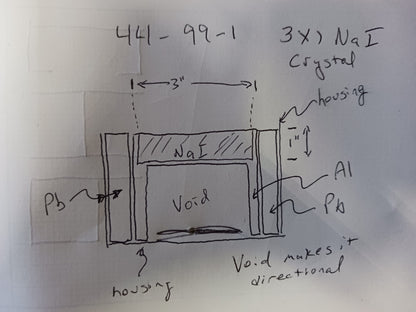 44-99-1
3x1 NaI
Crystal
3"
housing
1"
NaI
Al
Pb
Void
Pb
housing
Void makes it
directional